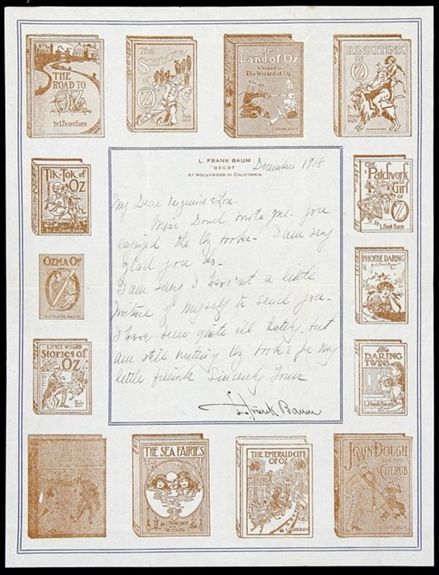 THE
ROAD TO
OZ
By L. FRANK BAUM
The
Land of Oz
A Sequel to
The Wizard of Oz
RINKITINK
OZ
TIK-TOK of
OZ
L. FRANK BAUM
"OZCOT"
AT HOLLYWOOD IN CALIFORNIA
December 1918
My Dear
Miss wrote me you
enjoyed the Oz books. I am very
glad you do.
I am sorry I haven't a little
picture of myself to send you.
I have been quite ill lately, but
am still writing Oz books for my
little friends. Sincerely Yours
L. Frank Baum
The
Patchwork
Girl of
OZ
L. FRANK BAUM
OZMA OF
OZ
L. FRANK BAUM
PHOEBE DARING
LITTLE WIZARD
Stories of
OZ
The
DARING
TWINS
THE SEA FAIRIES
THE EMERALD CITY OF
OZ
JOHN DOUGH
AND THE
CHERUB